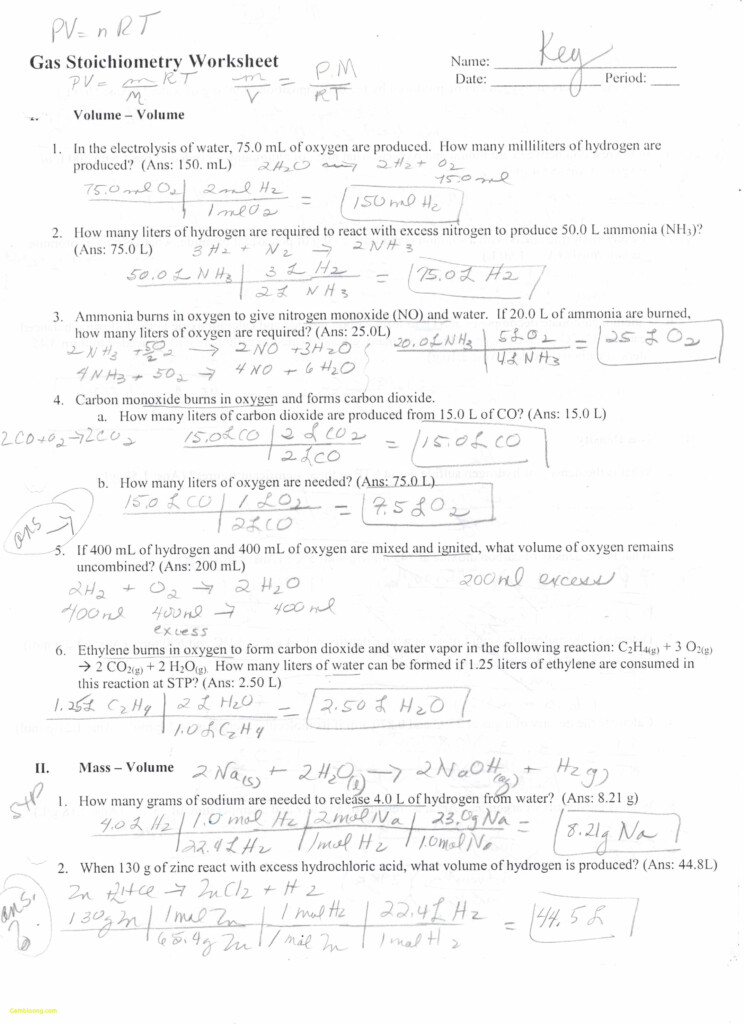 PV = nRT
Gas Stoichiometry Worksheet
Name: Key
PV = m/M RT m/V = P.M/RT
Date: ________ Period: ____
Volume – Volume
1. In the electrolysis of water, 75.0 mL of oxygen are produced. How many milliliters of hydrogen are
produced? (Ans: 150. mL) 2H2O → 2H2 + O2
75.0 ml
75.0 ml O2 | 2 ml H2 = 150 ml H2
1 ml O2
2. How many liters of hydrogen are required to react with excess nitrogen to produce 50.0 L ammonia (NH3)?
(Ans: 75.0 L) 3H2 + N2 → 2NH3
50.0 L NH3 | 3 L H2 = 75.0 L H2
2 L NH3
3. Ammonia burns in oxygen to give nitrogen monoxide (NO) and water. If 20.0 L of ammonia are burned,
how many liters of oxygen are required? (Ans: 25.0L)
2NH3 + 5/2 O2 → 2NO + 3H2O 20.0 L NH3 | 5 L O2 = 25 L O2
4NH3 + 5O2 → 4NO + 6H2O 4 L NH3
4. Carbon monoxide burns in oxygen and forms carbon dioxide.
a. How many liters of carbon dioxide are produced from 15.0 L of CO? (Ans: 15.0 L)
2CO + O2 → 2CO2 15.0 L CO | 2 L CO2 = 15.0 L CO
2 L CO
b. How many liters of oxygen are needed? (Ans: 75.0 L)
15.0 L CO | 1 L O2 = 7.5 L O2
2 L CO
ans →
5. If 400 mL of hydrogen and 400 mL of oxygen are mixed and ignited, what volume of oxygen remains
uncombined? (Ans: 200 mL) 200 ml excess
2H2 + O2 → 2H2O
400 ml 400 ml → 400 ml
excess
6. Ethylene burns in oxygen to form carbon dioxide and water vapor in the following reaction: C2H4(g) + 3 O2(g)
→ 2 CO2(g) + 2 H2O(g). How many liters of water can be formed if 1.25 liters of ethylene are consumed in
this reaction at STP? (Ans: 2.50 L)
1.25 L C2H4 | 2 L H2O = 2.50 L H2O
1.0 L C2H4
II. Mass – Volume 2Na(s) + 2H2O(l) → 2NaOH(aq) + H2(g)
STP
1. How many grams of sodium are needed to release 4.0 L of hydrogen from water? (Ans: 8.21 g)
4.0 L H2 | 1.0 mol H2 | 2 mol Na | 23.0 g Na = 8.21 g Na
22.4 L H2 | 1 mol H2 | 1.0 mol Na
2. When 130 g of zinc react with excess hydrochloric acid, what volume of hydrogen is produced? (Ans: 44.8L)
Zn + 2HCl → ZnCl2 + H2
ans.
130 g Zn | 1 mol Zn | 1 mol H2 | 22.4 L H2 = 44.5 L
65.4 g Zn | 1 mol Zn | 1 mol H2
Geekbiung.com